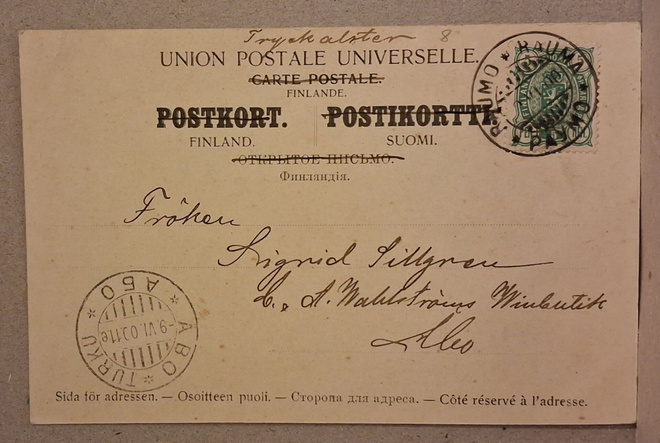 Tryckalster 8
UNION POSTALE UNIVERSELLE.
CARTE POSTALE.
FINLANDE.
POSTKORT. POSTIKORTTI.
FINLAND. SUOMI.
ОТКРЫТОЕ ПИСЬМО.
Финляндія.
RAUMO * RAUMA * РАУМО *
Fröken
Sigrid Sillgren
C. A. Wahlströms Vinbutik
Åbo
ÅBO * TURKU * АБО *
-9.VI.00.11e
Sida för adressen. — Osoitteen puoli. — Сторона для адреса. — Côté réservé à l'adresse.